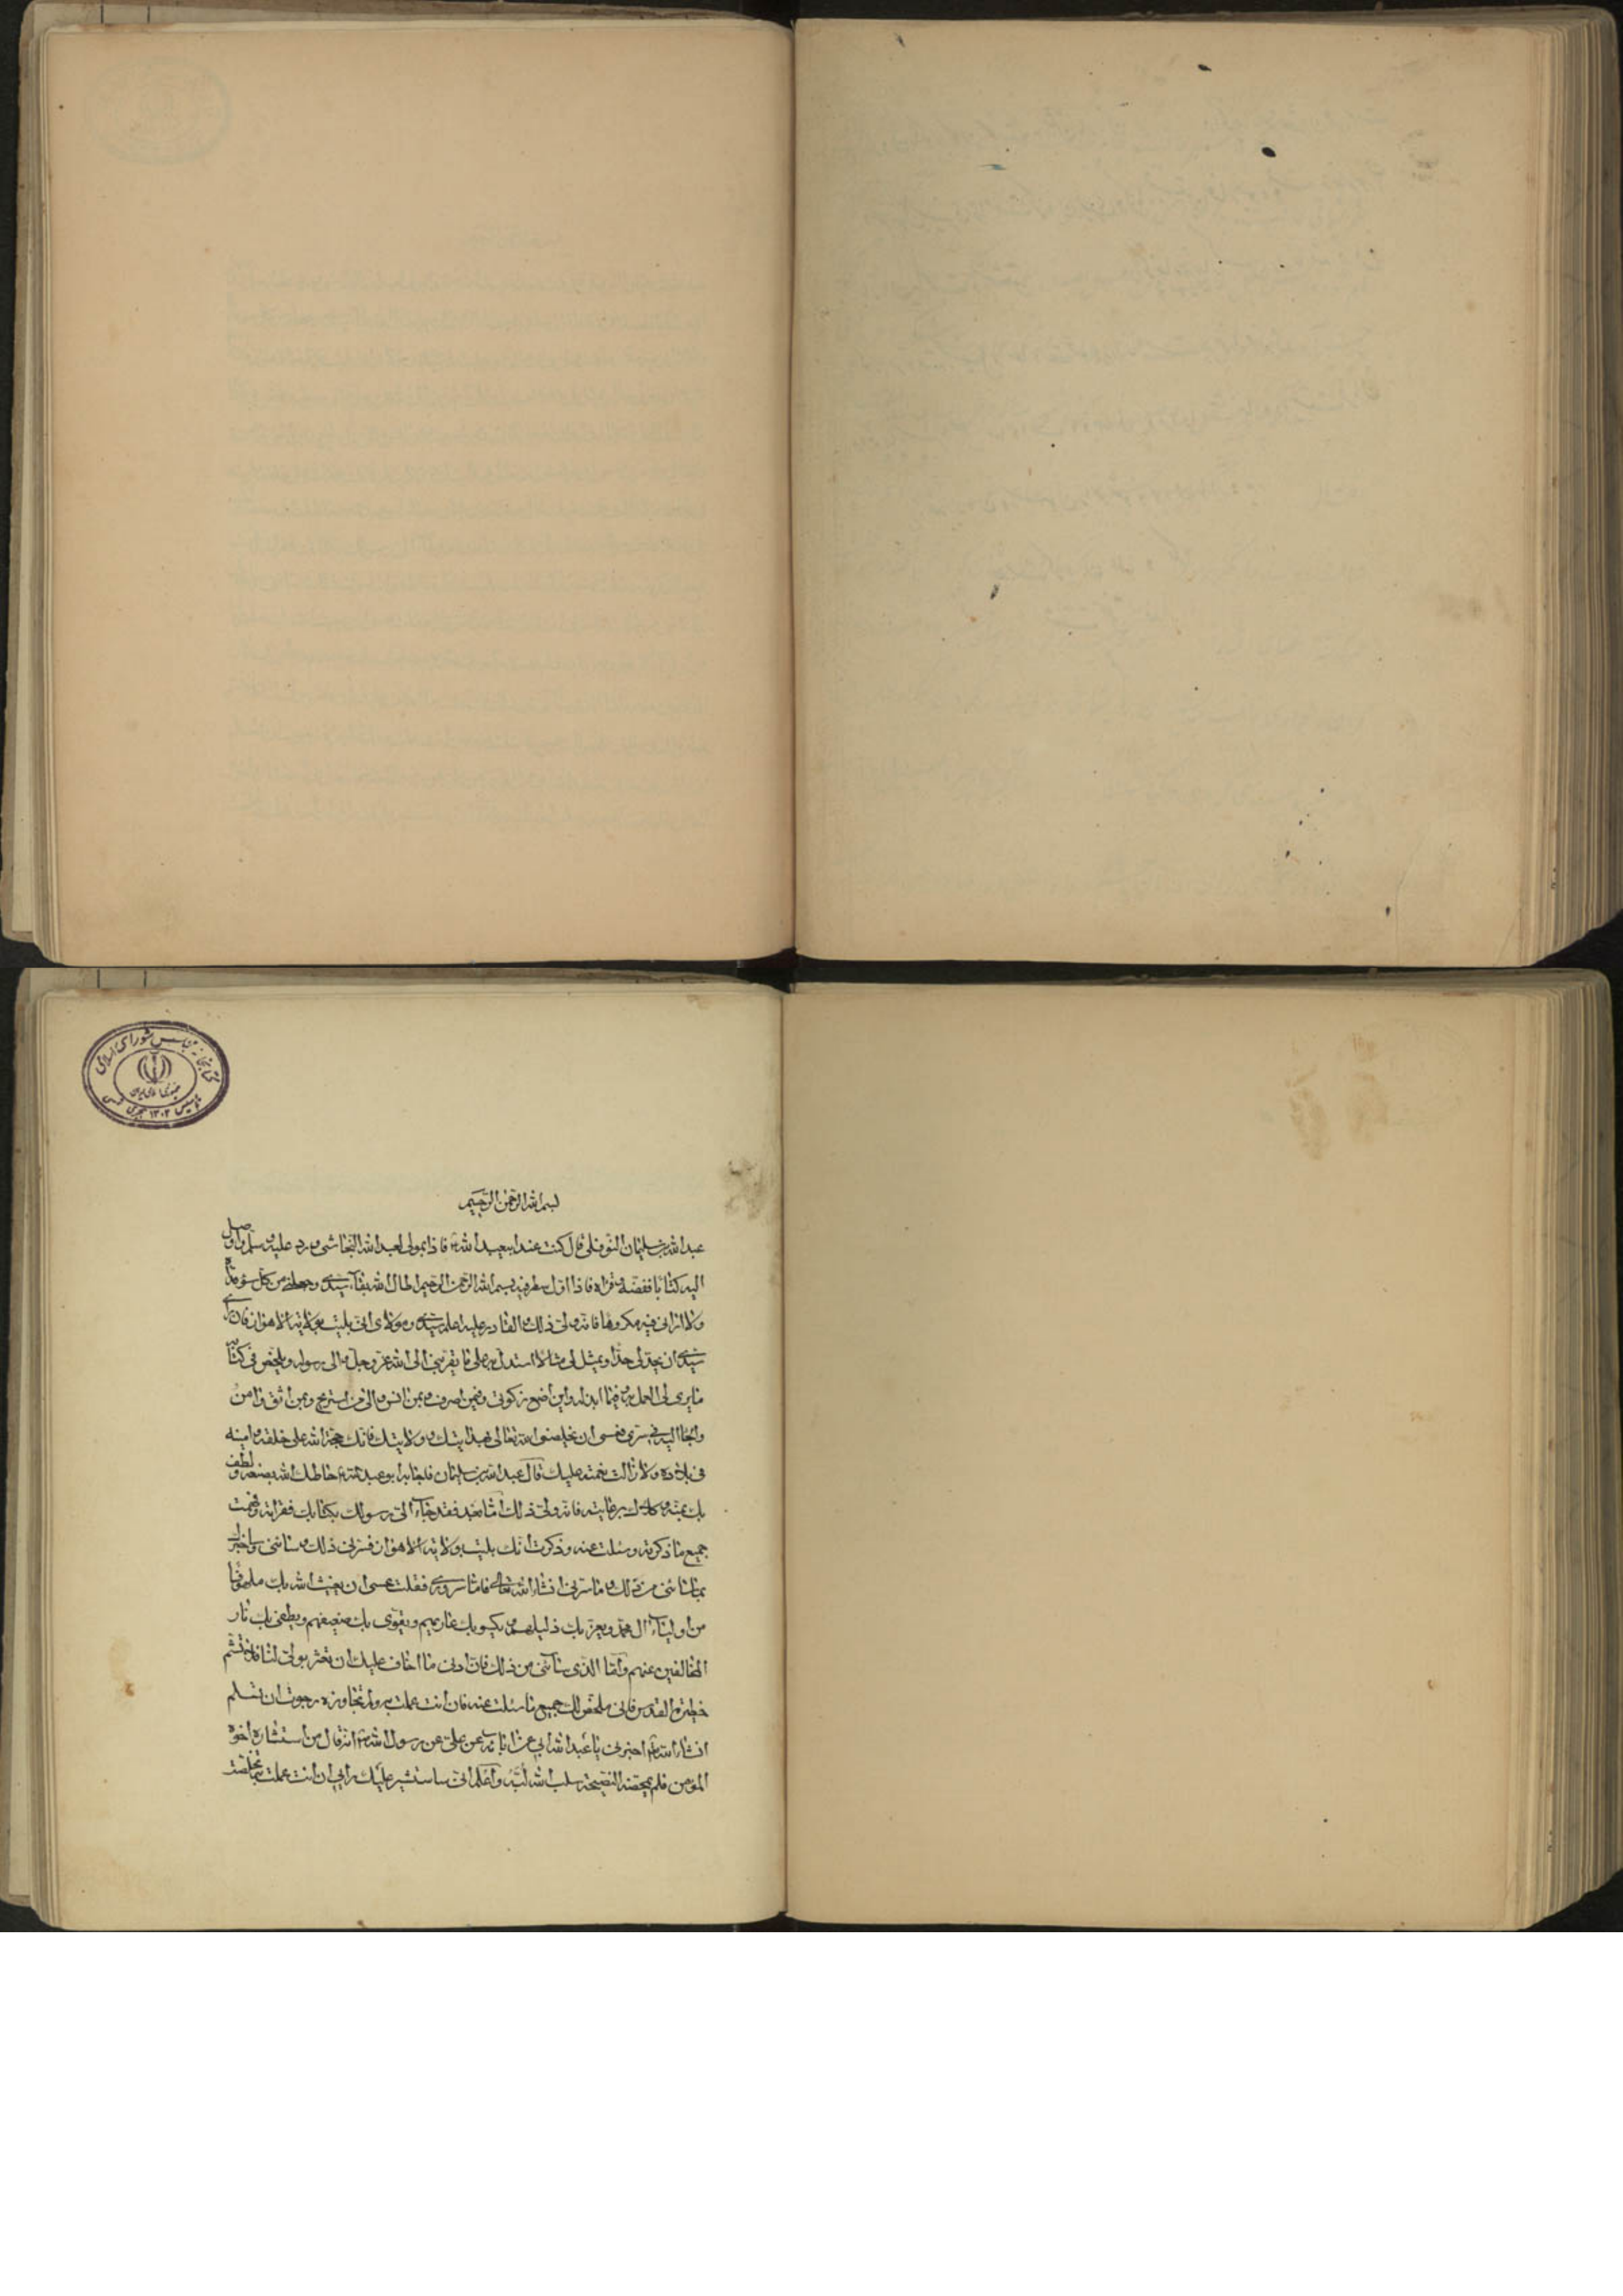 کتابخانه مجلس شورای اسلامی
تأسیس ۱۳۰۲ هجری شمسی
بسم الله الرحمن الرحیم
عبدالله بن سلیمان النوفلی قال کنت عند ابیعبدالله ع فاذا بمولی لعبدالله النجاشی ورد علیه وسلم واوصل
الیه کتابا ففضه وقراه فاذا اول سطر فیه بسم الله الرحمن الرحیم اطال الله بقآء سیدی وجعلنی من کل سوء فداه
ولا ارانی فیه مکروها فانه ولی ذلک والقادر علیه اعلم سیدی ومولای انی بلیت بولایة الاهواز فان رای
سیدی ان یحد لی حدا ویمثل لی مثالا استدل به علی ما یقربنی الی الله عز وجل والی رسوله ویلخص فی کتابه
ما یری لی العمل به وفیما ابذله واین اضع زکوتی وفیمن اصرف وبمن انس والی من استریح وبمن اثق وامن
والجا الیه فی سری فعسی ان یخلصنی الله تعالی بهدایتک وولایتک فانک حجة الله علی خلقه وامینه
فی بلاده ولا زالت نعمته علیک قال عبدالله بن سلیمان فاجابه ابو عبدالله ع حاطک الله بصنعه ولطف
بک بمنه وکلاک برعایته فانه ولی ذلک اما بعد فقد جآء الی رسولک بکتابک فقراته وفهمت
جمیع ما ذکرته وسئلت عنه وذکرت انک بلیت بولایة الاهواز فسرنی ذلک وسائنی وساخبرک
بما سائنی من ذلک وما سرنی انشاء الله تعالی فاما سروری فقلت عسی ان یغیث الله بک ملهوفا
من اولیآء آل محمد ویعز بک ذلیلهم ویکسو بک عاریهم ویقوی بک ضعیفهم ویطفی بک نار
المخالفین عنهم واما الذی سآئنی من ذلک فان ادنی ما اخاف علیک ان تعثر بولی لنا فلا تشم
حظیرة القدس فانی ملخص لک جمیع ما سئلت عنه فان انت عملت به ولم تجاوزه رجوت ان تسلم
انشاء الله اخبرنی یا عبدالله ابی عن ابائه عن علی عن رسول الله ص انه قال من استشاره اخوه
المؤمن فلم یمحضه النصیحة سلب الله لبه واعلم انی ساشیر علیک برای ان انت عملت به تخلصت